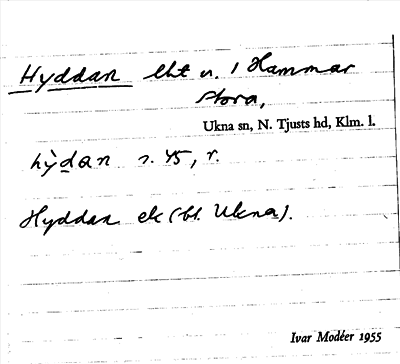 Hyddan lht u. 1 Hammar
Stora,
Ukna sn, N. Tjusts hd, Klm. l.
hỳdan s. 45, r.
Hyddan ek (bl. Ukna).
Ivar Modéer 1955